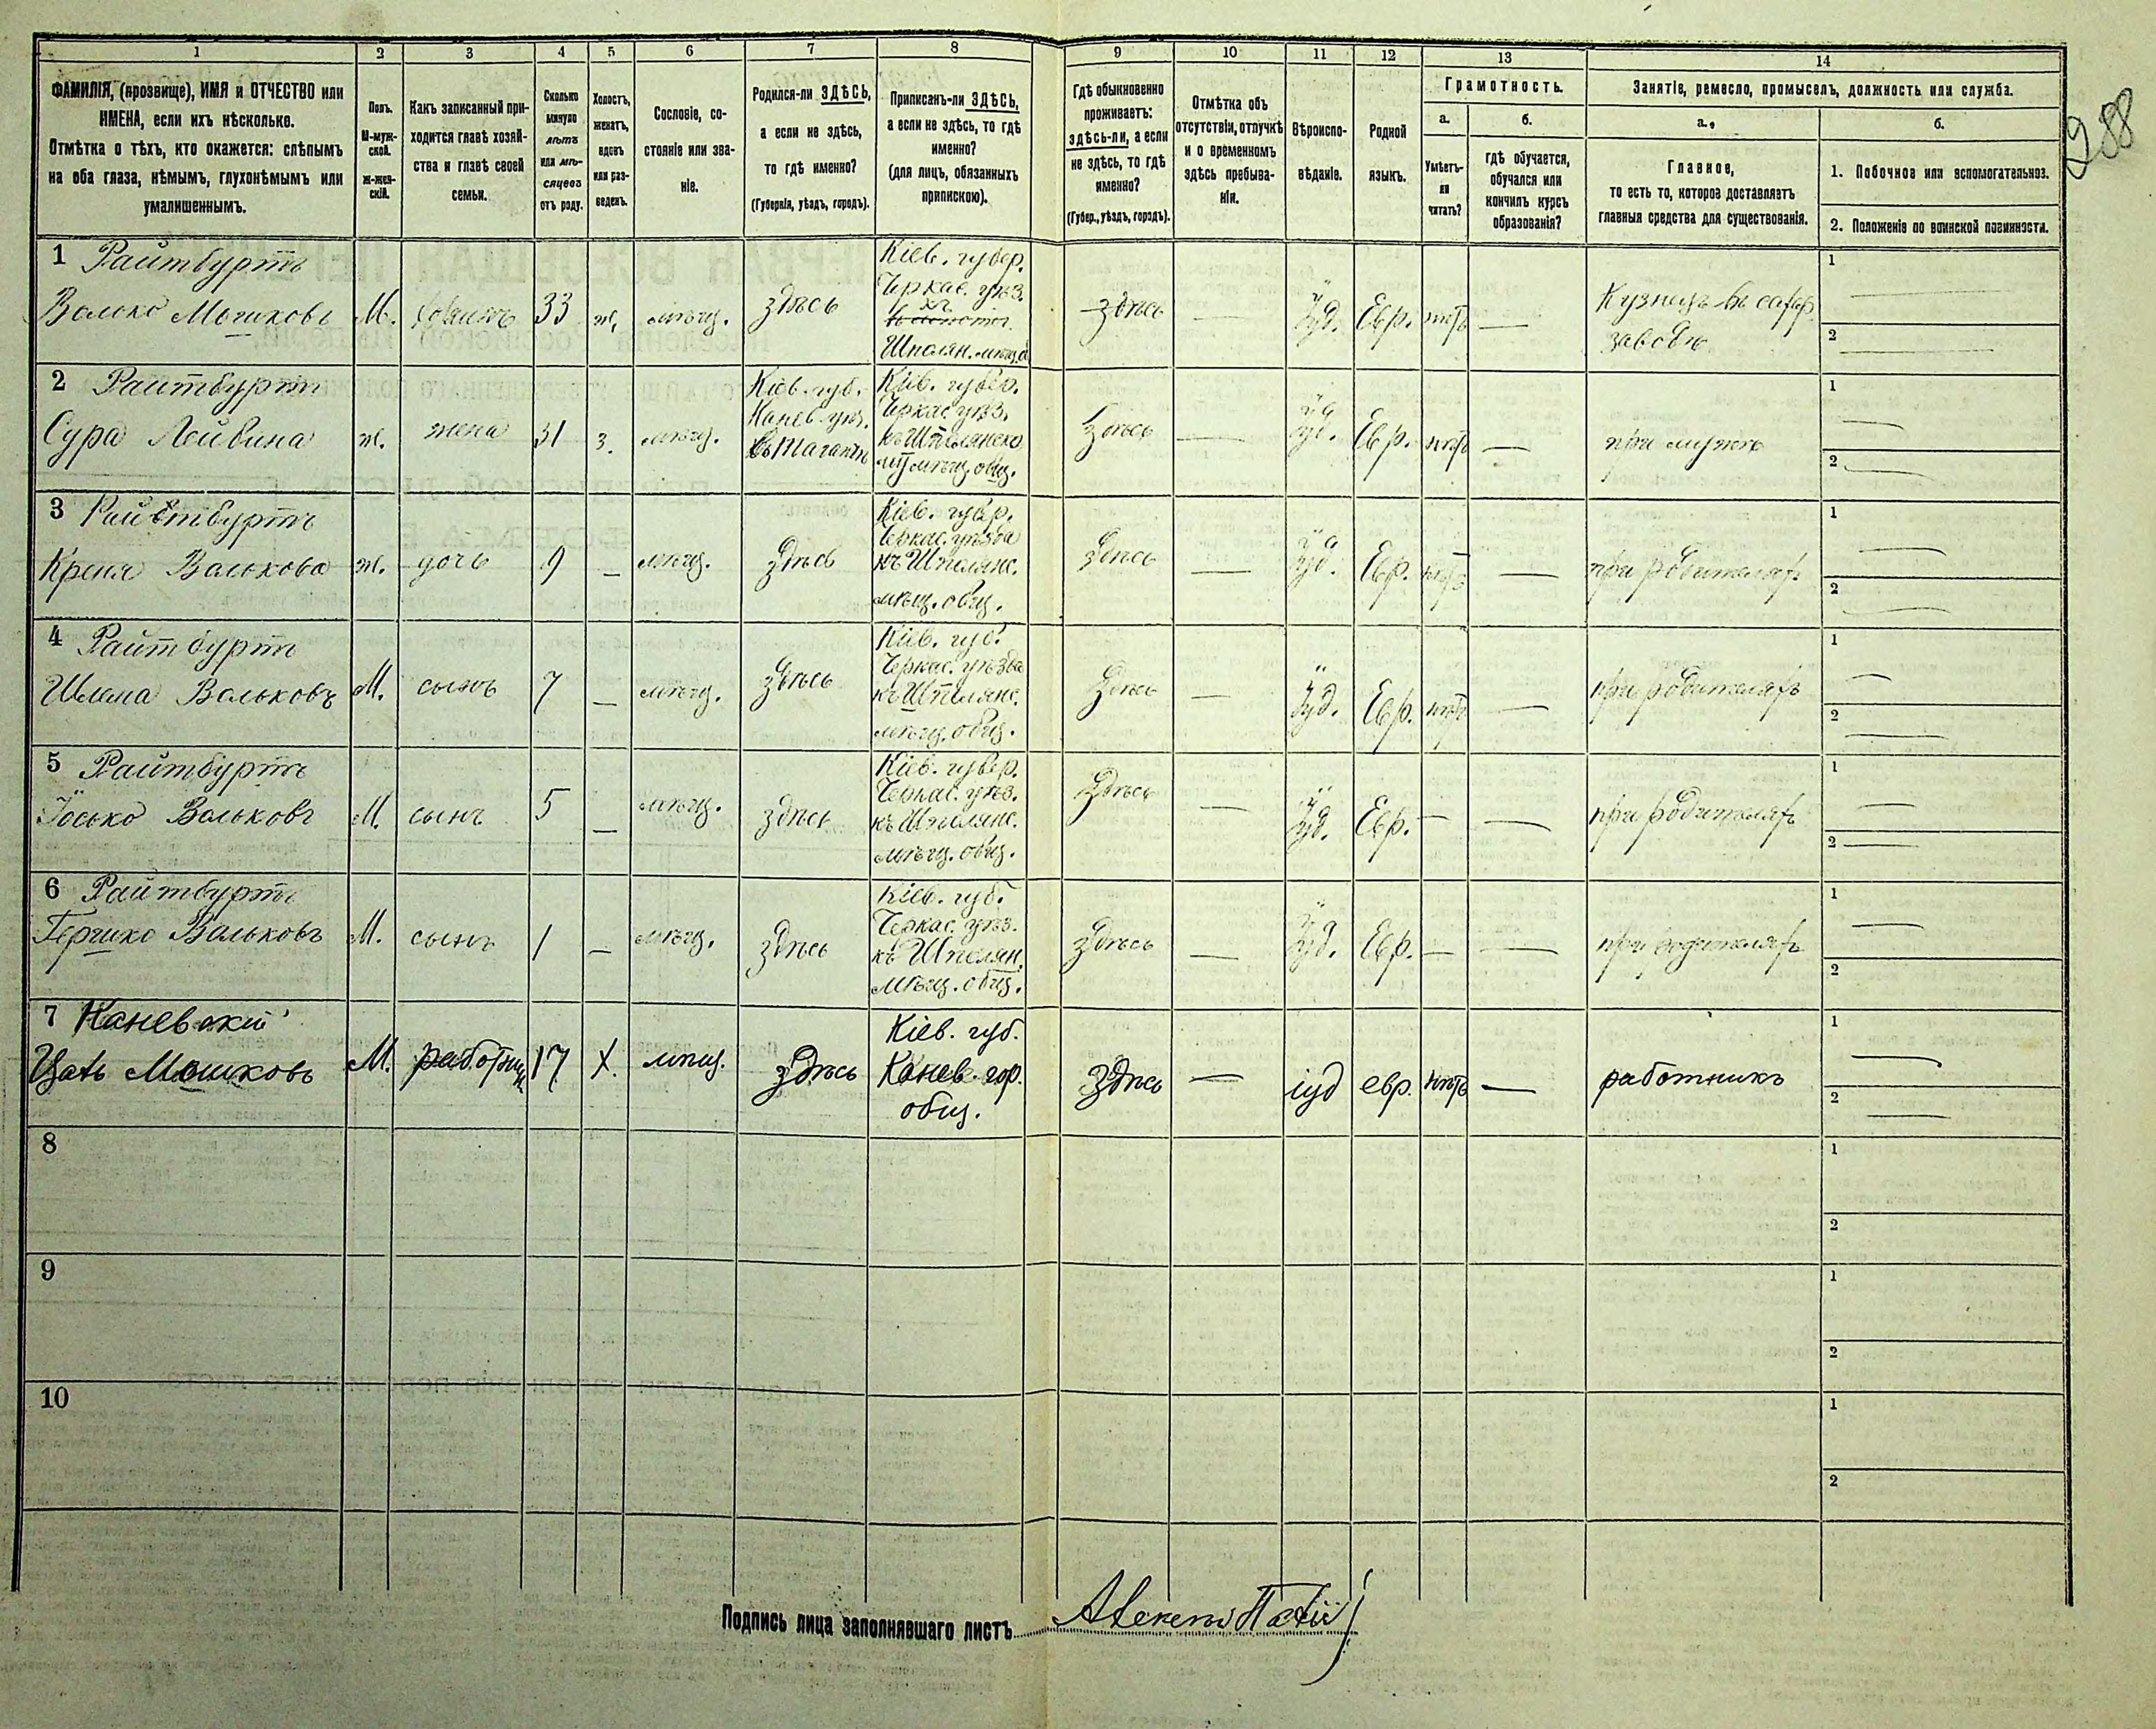 288
1 2 3 4 5 6 7 8 9 10 11 12 13 14
ФАМИЛІЯ, (прозвище), ИМЯ и ОТЧЕСТВО или
ИМЕНА, если ихъ нѣсколько.
Отмѣтка о тѣхъ, кто окажется: слѣпымъ
на оба глаза, нѣмымъ, глухонѣмымъ или
умалишеннымъ.
Полъ.
М-муж-
ской.
Ж-жен-
скій.
Какъ записанный при-
ходится главѣ хозяй-
ства и главѣ своей
семьи.
Сколько
минуло
лѣтъ
или мѣ-
сяцевъ
отъ роду.
Холостъ,
женатъ,
вдовъ
или раз-
веденъ.
Сословіе, со-
стояніе или зва-
ніе.
Родился-ли ЗДѢСЬ,
а если не здѣсь,
то гдѣ именно?
(Губернія, уѣздъ, городъ).
Приписанъ-ли ЗДѢСЬ,
а если не здѣсь, то гдѣ
именно?
(для лицъ, обязанныхъ
припискою).
Гдѣ обыкновенно
проживаетъ:
здѣсь-ли, а если
не здѣсь, то гдѣ
именно?
(Губер., уѣздъ, городъ).
Отмѣтка объ
отсутствіи, отлучкѣ
и о временномъ
здѣсь пребыва-
ніи.
Вѣроиспо-
вѣданіе.
Родной
языкъ.
Грамотность.
а.
Умѣетъ-
ли
читать?
б.
гдѣ обучается,
обучался или
кончилъ курсъ
образованія?
Занятіе, ремесло, промыселъ, должность или служба.
а.,
Главное,
то есть то, которое доставляетъ
главныя средства для существованія.
б.
1. Побочное или вспомогательное.
2. Положеніе по воинской повинности.
1 Райтбуртъ
Волько Мошковъ
М.
хозяинъ
33
ж.
мѣщ.
здѣсь
Кіев. губер.
Черкас. уѣз.
Шполян. мѣщ.
здѣсь
—
Іуд.
Евр.
нѣтъ
—
Кузнецъ въ сахар.
заводѣ
1
2
2 Райтбуртъ
Сура Лейбина
ж.
жена
31
з.
мѣщ.
Кіев. губ.
Канев. уѣз.
въ Таганчѣ
Кіев. губер.
Черкас. уѣз.
къ Шполянско
му мѣщ. общ.
здѣсь
—
Іуд.
Евр.
нѣтъ
—
при мужѣ
1
2
3 Райтбуртъ
Креня Валькова
ж.
дочь
9
—
мѣщ.
здѣсь
Кіев. губер.
Черкас. уѣзда
къ Шполянс.
мѣщ. общ.
здѣсь
—
Іуд.
Евр.
нѣтъ
—
при родителяхъ
1
2
4 Райтбуртъ
Шлема Вольковъ
М.
сынъ
7
—
мѣщ.
здѣсь
Кіев. губ.
Черкас. уѣзда
къ Шполянс.
мѣщ. общ.
здѣсь
—
Іуд.
Евр.
нѣтъ
—
при родителяхъ
1
2
5 Райтбуртъ
Іосько Вольковъ
М.
сынъ
5
—
мѣщ.
здѣсь
Кіев. губер.
Черкас. уѣз.
къ Шполянс.
мѣщ. общ.
здѣсь
—
Іуд.
Евр.
—
—
при родителяхъ
1
2
6 Райтбуртъ
Гершко Вальковъ
М.
сынъ
1
—
мѣщ.
здѣсь
Кіев. губ.
Черкас. уѣз.
къ Шполян.
мѣщ. общ.
здѣсь
—
Іуд.
Евр.
—
—
при родителяхъ
1
2
7 Каневскій
Мошковъ
М.
работник
17
Х.
мѣщ.
здѣсь
Кіев. губ.
Канев. гор.
общ.
здѣсь
—
іуд
евр.
нѣтъ
—
работникъ
1
2
8
1
2
9
1
2
10
1
2
Подпись лица заполнявшаго листъ